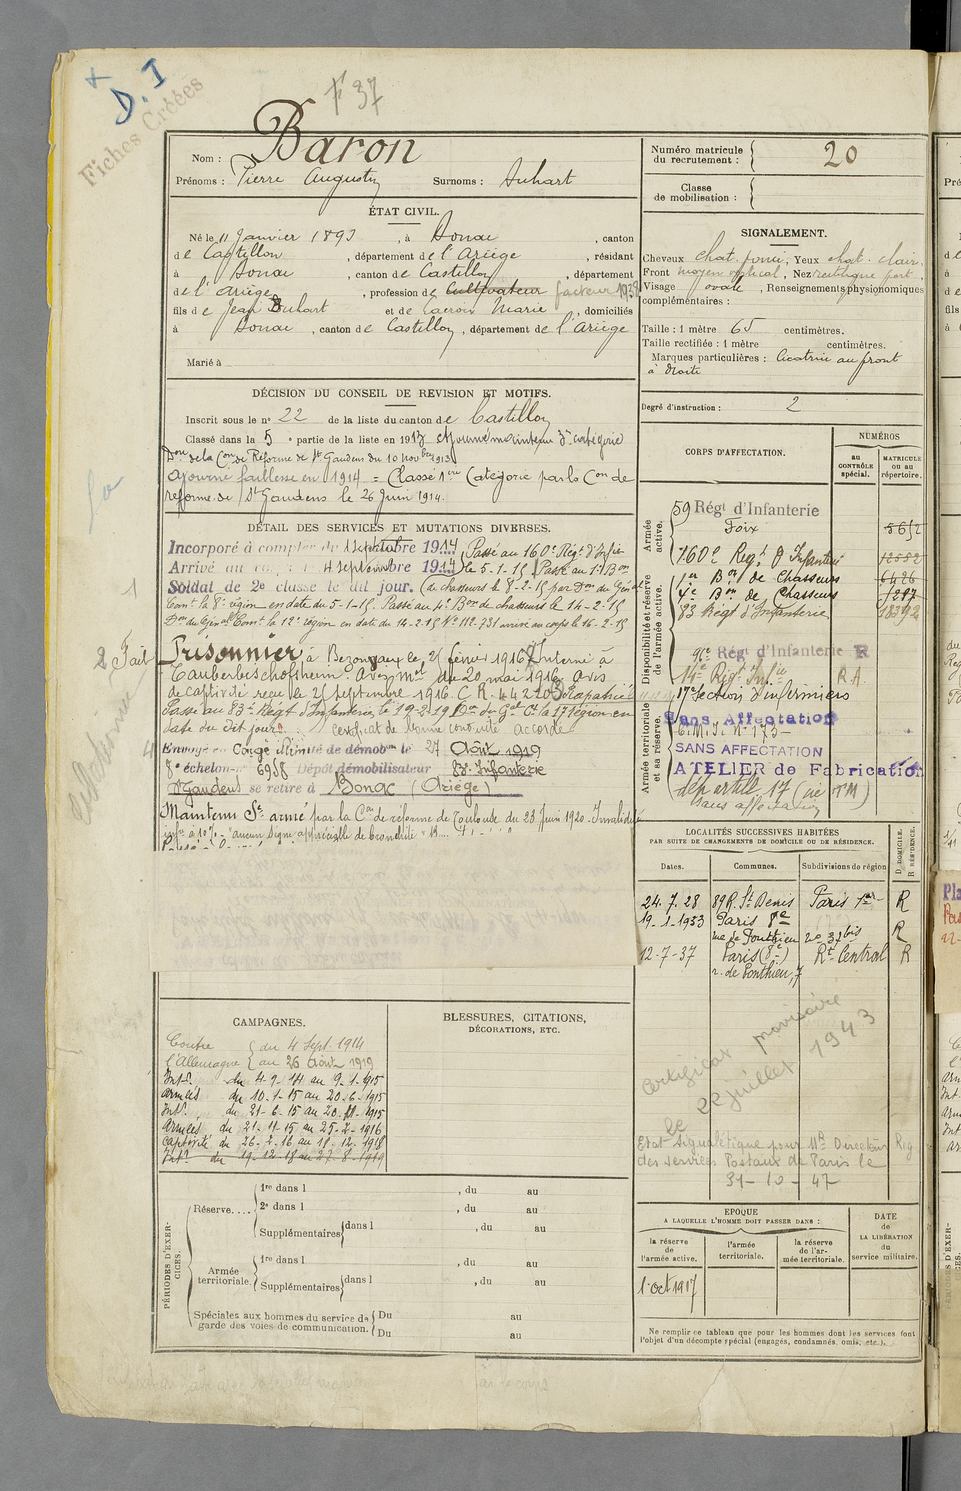 D.I
F 37
Fiches Créées
Nom : Baron
Prénoms : Pierre Augustin Surnoms : Duhart
ÉTAT CIVIL.
Né le 11 Janvier 1893, à Bonac, canton
de Castillon, département de l'Ariège, résidant
à Bonac, canton de Castillon, département
de l'Ariège, profession de Cultivateur facteur 1938
fils de Jean Duhart et de Lacroix Marie, domiciliés
à Bonac, canton de Castillon, département de l'Ariège
Marié à
DÉCISION DU CONSEIL DE REVISION ET MOTIFS.
Inscrit sous le n° 22 de la liste du canton de Castillon
Classé dans la 5e partie de la liste en 1913 ajourné maintenu 3e catégorie
Don de la Con de Réforme de St Gaudens du 10 Novbre 1913
ajourné faiblesse en 1914 = Classé 1ère Catégorie par la Con de
réforme de St Gaudens le 26 Juin 1914.
DÉTAIL DES SERVICES ET MUTATIONS DIVERSES.
Incorporé à compter du 1 Septembre 1914 Passé au 160e Régt d'Infie
Arrivé au corps le 4 septembre 1914 le 5-1-15 Passé au 1er Bon
Soldat de 2e classe le dit jour. de chasseurs le 8-2-15 par Don du Général
Comt la 8e région en date du 5-1-15. Passé au 4e Bon de chasseurs le 14-2-15
Don du Général Comt la 12e région en date du 14-2-15 N° 112.731 arrivé au corps le 16-2-15
2 Fait
Prisonnier à Bezonvaux le 25 février 1916 Interné à
Tauberbischoffsheim. Avis Mre du 20 mai 1916. avis
de captivité reçu le 25 septembre 1916. C.R. 442203 Rapatrié
Passé au 83e Régt d'Infanterie le 19-2-19 Don du Gal Ct la 17e région en
date du dit jour. Certificat de bonne conduite accordé
Envoyé en Congé illimité de démobon le 27 Août 1919
8e échelon n° 6958 Dépôt démobilisateur 83e Infanterie
St Gaudens se retire à Bonac (Ariège)
Maintenu Sce armé par la Con de réforme de Toulouse du 23 Juin 1920. Invalidité
infre à 10% "aucun signe appréciable de bronchite"
CAMPAGNES.
Contre du 4 Sept 1914
l'Allemagne au 26 Août 1919
Intr. du 4-9-14 au 9-1-1915
Armées du 10-1-15 au 20-6-1915
Intr. du 21-6-15 au 20-11-1915
Armées du 21-11-15 au 25-2-1916
Captivité du 26-2-16 au 18-12-1918
Intr. du 19-12-18 au 27-8-1919
BLESSURES, CITATIONS,
DÉCORATIONS, ETC.
PÉRIODES D'EXERCICES.
Réserve....
1re dans l , du au
2e dans l , du au
Supplémentaires dans l , du au
Armée territoriale.
1re dans l , du au
Supplémentaires dans l , du au
Spéciales aux hommes du service de garde des voies de communication.
Du au
Du au
Numéro matricule du recrutement : 20
Classe de mobilisation :
SIGNALEMENT.
Cheveux chat. foncé, Yeux chat. clair,
Front moyen vertical, Nez rectiligne fort,
Visage ovale, Renseignements physionomiques
complémentaires :
Taille : 1 mètre 65 centimètres.
Taille rectifiée : 1 mètre centimètres.
Marques particulières : Cicatrice au front
à droite
Degré d'instruction : 2
CORPS D'AFFECTATION.
NUMÉROS
au CONTRÔLE spécial.
MATRICULE ou au répertoire.
Armée active.
Disponibilité et réserve de l'armée active.
Armée territoriale et sa réserve.
59 Régt d'Infanterie
Foix 5652
160e Regt d'Infanterie 12552
1er Bon de Chasseurs 6426
4e Bon de Chasseurs 7287
83 Régt d'Infanterie 18392
Régt d'Infanterie R
14e Régt Infie R.A.
17e Section d'infirmiers
Sans Affectation
C.M.I. N° 173
SANS AFFECTATION
ATELIER de Fabrication
sans affectation
LOCALITÉS SUCCESSIVES HABITÉES
PAR SUITE DE CHANGEMENTS DE DOMICILE OU DE RÉSIDENCE.
Dates. Communes. Subdivisions de région D. DOMICILE. R. RÉSIDENCE.
24.7.28 89 R. St Denis Paris 1er R
19-1-1933 Paris 8e
rue de Ponthieu 20 37 bis R
12-7-37 Paris (8e) Rt Central R
r. de Ponthieu, 7
Certificat provisoire
22 juillet 1943
Etat signalétique pour Mr Directeur
des services Postaux de Paris le
31-10-47
EPOQUE
A LAQUELLE L'HOMME DOIT PASSER DANS :
DATE de LA LIBÉRATION du service militaire.
la réserve de l'armée active. l'armée territoriale. la réserve de l'armée territoriale.
1 oct 1917
Ne remplir ce tableau que pour les hommes dont les services font
l'objet d'un décompte spécial (engagés, condamnés, omis, etc.).